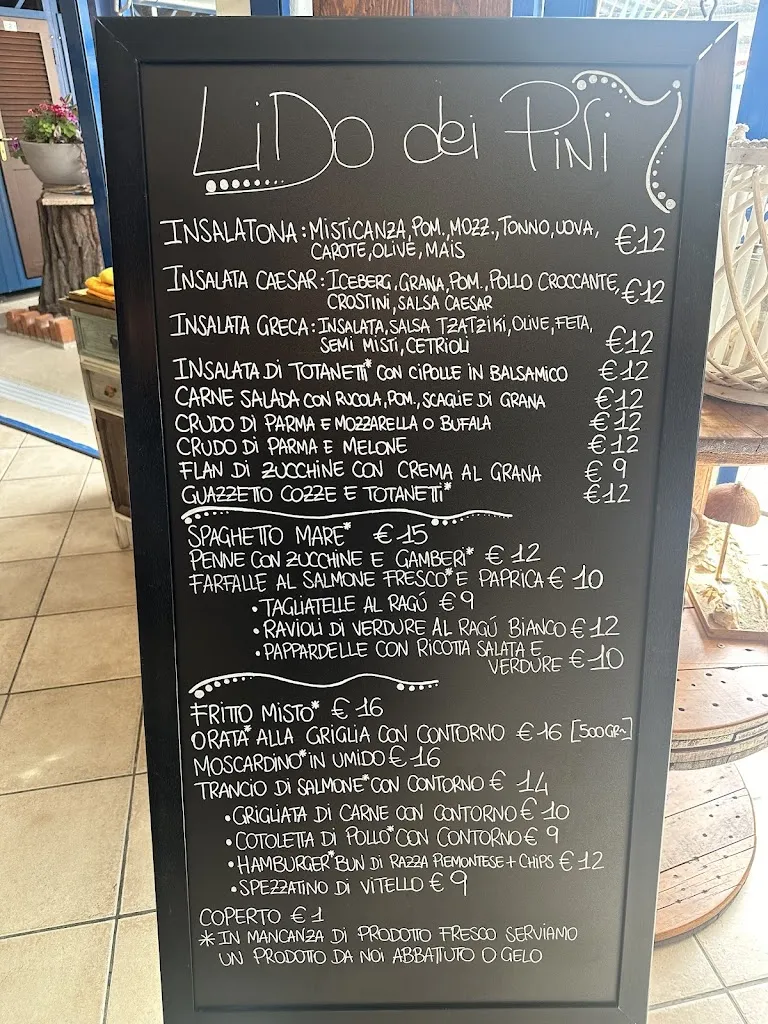 LiDO dei PiNi
INSALATONA: MISTICANZA, POM., MOZZ., TONNO, UOVA,
CAROTE, OLIVE, MAIS €12
INSALATA CAESAR: ICEBERG, GRANA, POM., POLLO CROCCANTE,
CROSTINI, SALSA CAESAR €12
INSALATA GRECA: INSALATA, SALSA TZATZIKI, OLIVE, FETA,
SEMI MISTI, CETRIOLI €12
INSALATA DI TOTANETTI* CON CIPOLLE IN BALSAMICO €12
CARNE SALADA CON RUCOLA, POM., SCAGLIE DI GRANA €12
CRUDO DI PARMA E MOZZARELLA O BUFALA €12
CRUDO DI PARMA E MELONE €12
FLAN DI ZUCCHINE CON CREMA AL GRANA €9
GUAZZETTO COZZE E TOTANETTI* €12
SPAGHETTO MARE* €15
PENNE CON ZUCCHINE E GAMBERI* €12
FARFALLE AL SALMONE FRESCO* E PAPRICA €10
• TAGLIATELLE AL RAGÚ €9
• RAVIOLI DI VERDURE AL RAGÚ BIANCO €12
• PAPPARDELLE CON RICOTTA SALATA E
VERDURE €10
FRITTO MISTO* €16
ORATA* ALLA GRIGLIA CON CONTORNO €16 [500GR~]
MOSCARDINO* IN UMIDO €16
TRANCIO DI SALMONE* CON CONTORNO €14
• GRIGLIATA DI CARNE CON CONTORNO €10
• COTOLETTA DI POLLO* CON CONTORNO €9
• HAMBURGER* BUN DI RAZZA PIEMONTESE + CHIPS €12
• SPEZZATINO DI VITELLO €9
COPERTO €1
* IN MANCANZA DI PRODOTTO FRESCO SERVIAMO
UN PRODOTTO DA NOI ABBATTUTO O GELO